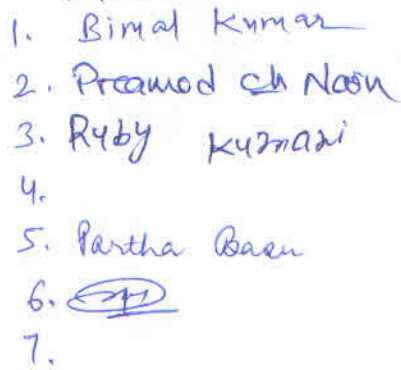 1. Bimal Kumar
2. Preamod ch Naan
3. Ruby Kumari
4.
5. Partha Basu
6.
7.